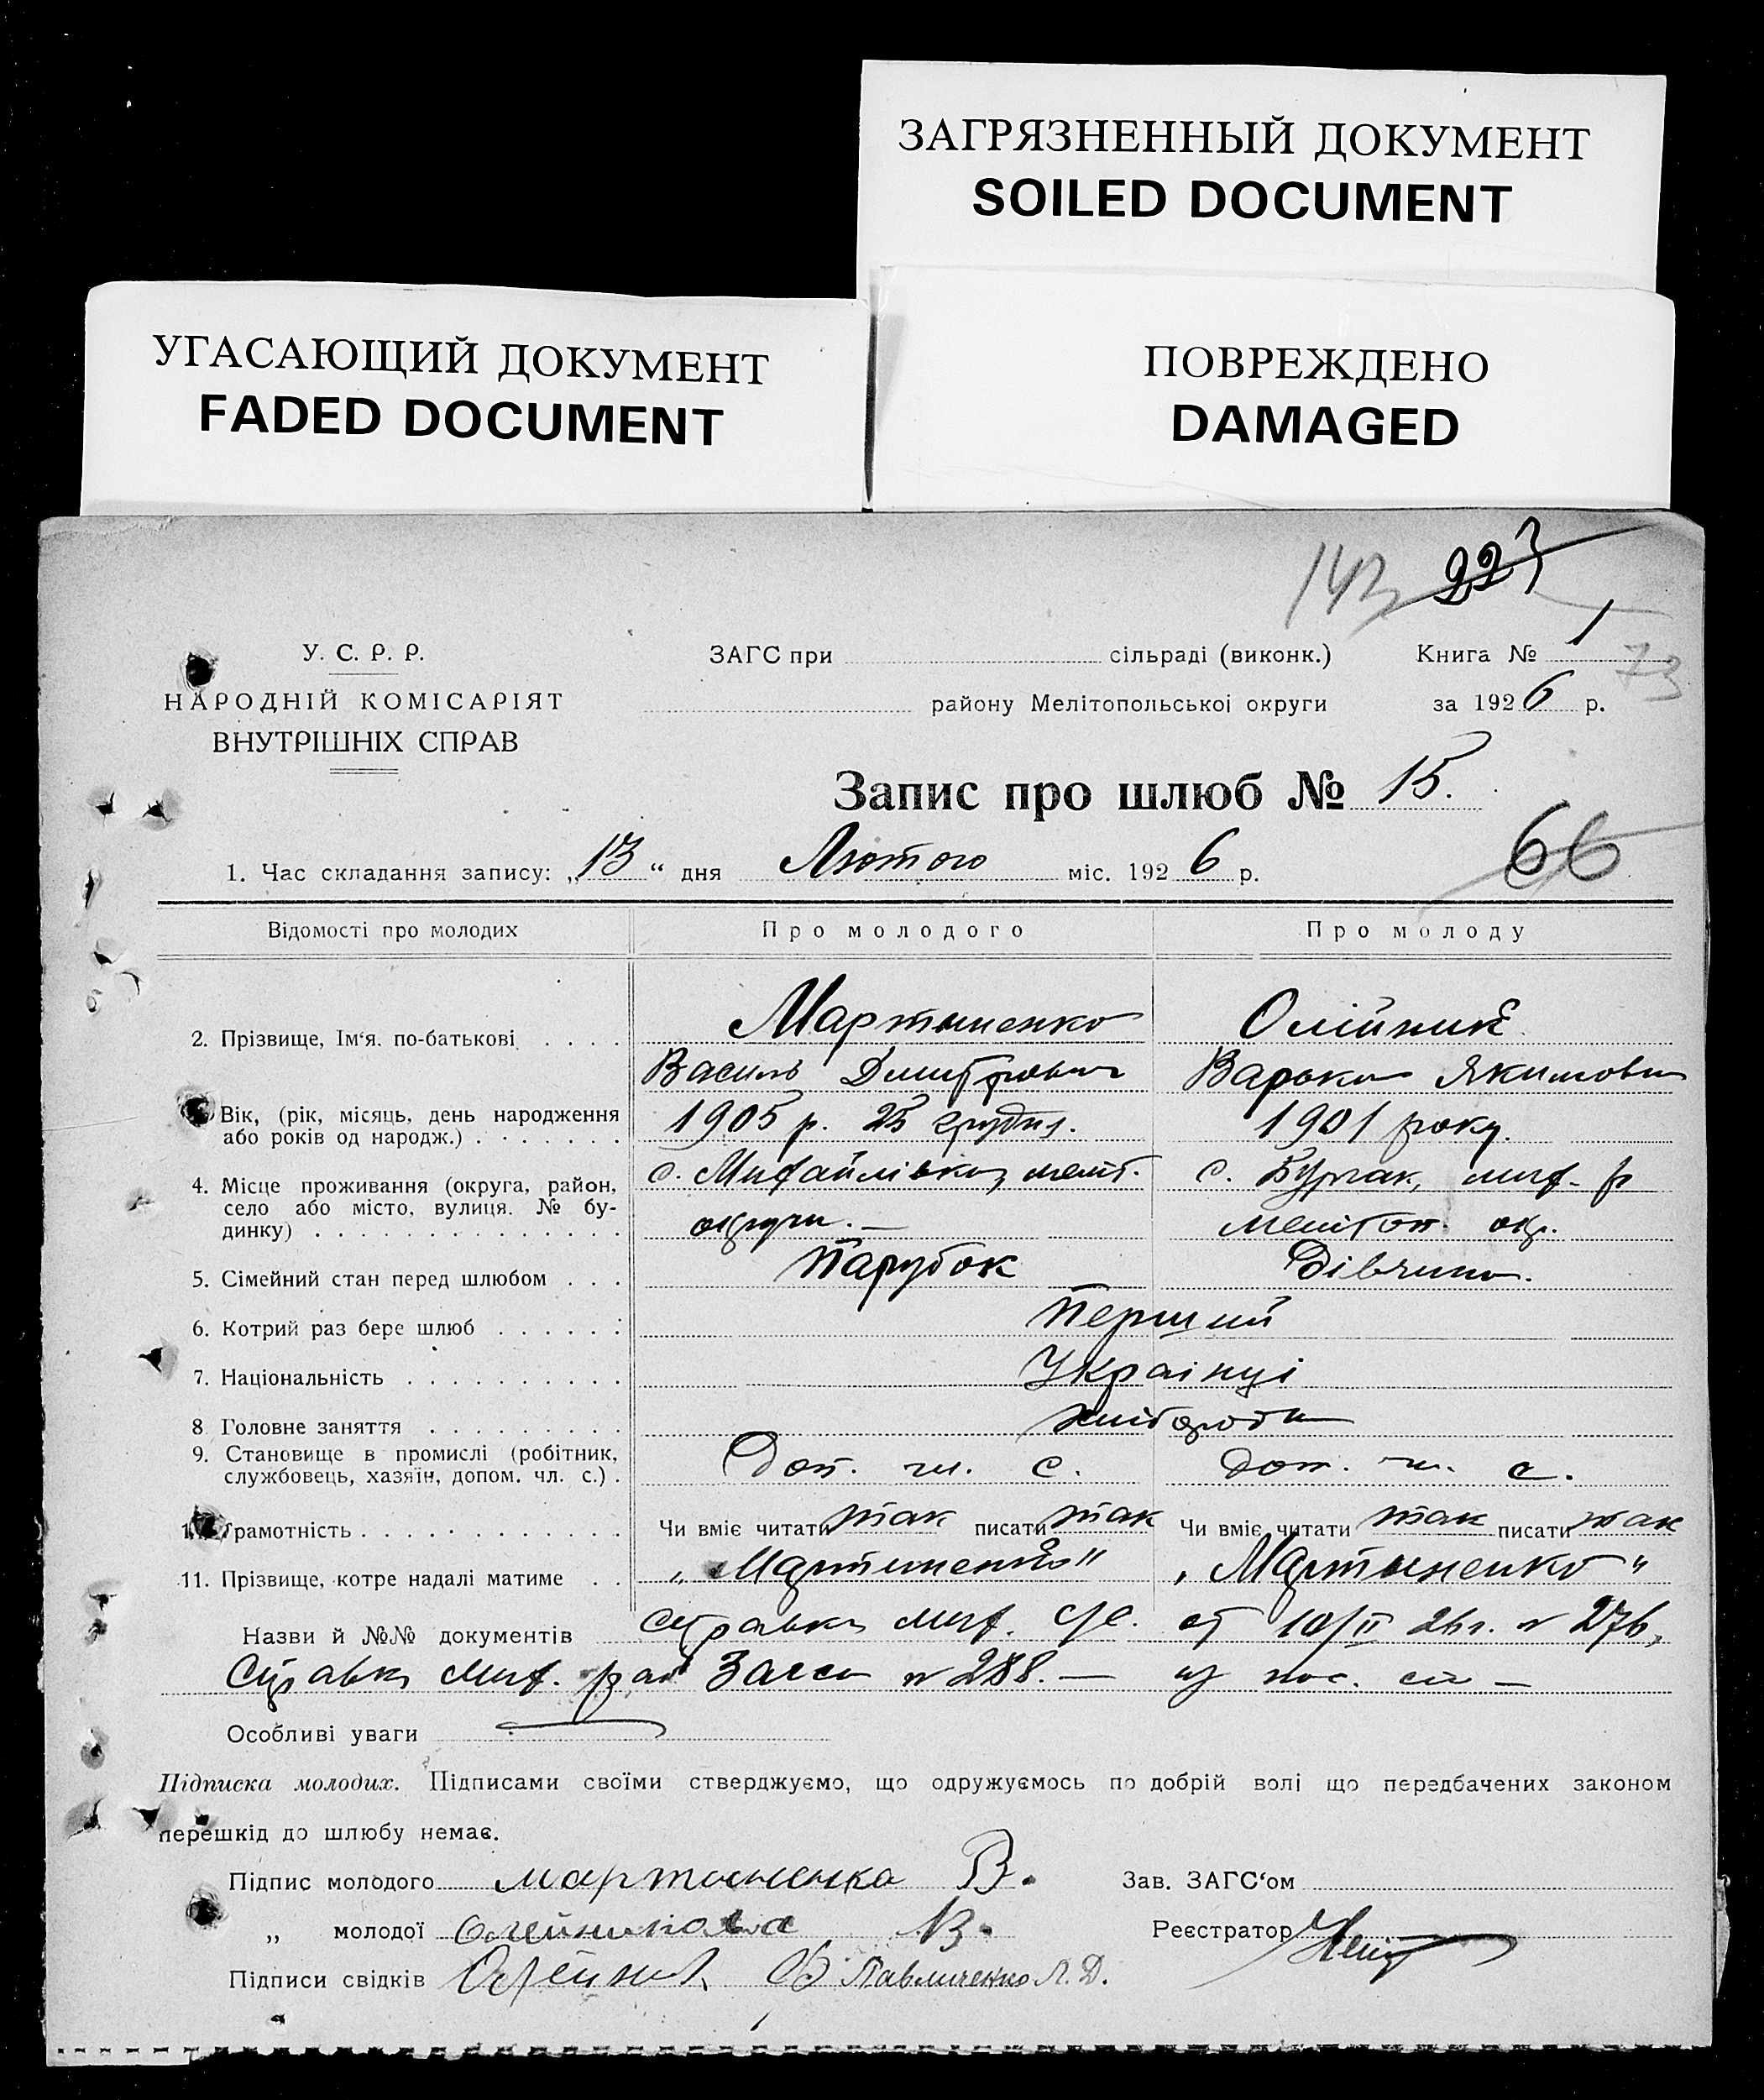 ЗАГРЯЗНЕННЫЙ ДОКУМЕНТ
SOILED DOCUMENT
УГАСАЮЩИЙ ДОКУМЕНТ
FADED DOCUMENT
ПОВРЕЖДЕНО
DAMAGED
143 223
У. С. Р. Р.
НАРОДНІЙ КОМІСАРІЯТ
ВНУТРІШНІХ СПРАВ
ЗАГС при сільраді (виконк.) Книга № 1 73
району Мелітопольської округи за 1926 р.
Запис про шлюб № 15.
1. Час складання запису: „13“ дня Лютого міс. 1926 р.
66
Відомості про молодих Про молодого Про молоду
2. Прізвище, Ім'я, по-батькові . . . . Мартыненко Олійник
Василь Дмитрович Варька Якимовна
Вік, (рік, місяць, день народження або років од народж.) . . . . . . . 1905 р. 25 грудня. 1901 року.
4. Місце проживання (округа, район, село або місто, вулиця. № будинку) . . . . . . . . . . . . . . с. Михайлівка, меліт. округи. — с. Бурчак, мих. р мелітоп. окр.
5. Сімейний стан перед шлюбом . . . Парубок Дівчина.
6. Котрий раз бере шлюб . . . . . . Перший
7. Національність . . . . . . . . . . Українці
8 Головне заняття . . . . . . . . . хлібороби
9. Становище в промислі (робітник, службовець, хазяїн, допом. чл. с.) . Доп. чл. с. Доп. чл. с.
Грамотність . . . . . . . . . . . . Чи вміє читати так писати так Чи вміє читати так писати так
11. Прізвище, котре надалі матиме . . „Мартиненко" „Мартыненко"
Назви й №№ документів справка мих. с/с. от 10/II 26г. № 276,
Справка мих. рай Загса № 288. —
Особливі уваги
Підписка молодих. Підписами своїми стверджуємо, що одружуємось по добрій волі що передбачених законом
перешкід до шлюбу немає.
Підпис молодого мартыненка В. Зав. ЗАГС'ом
„ молодої Олейникова В. Реєстратор
Підписи свідків Олейник В Павличенко Л. Д.